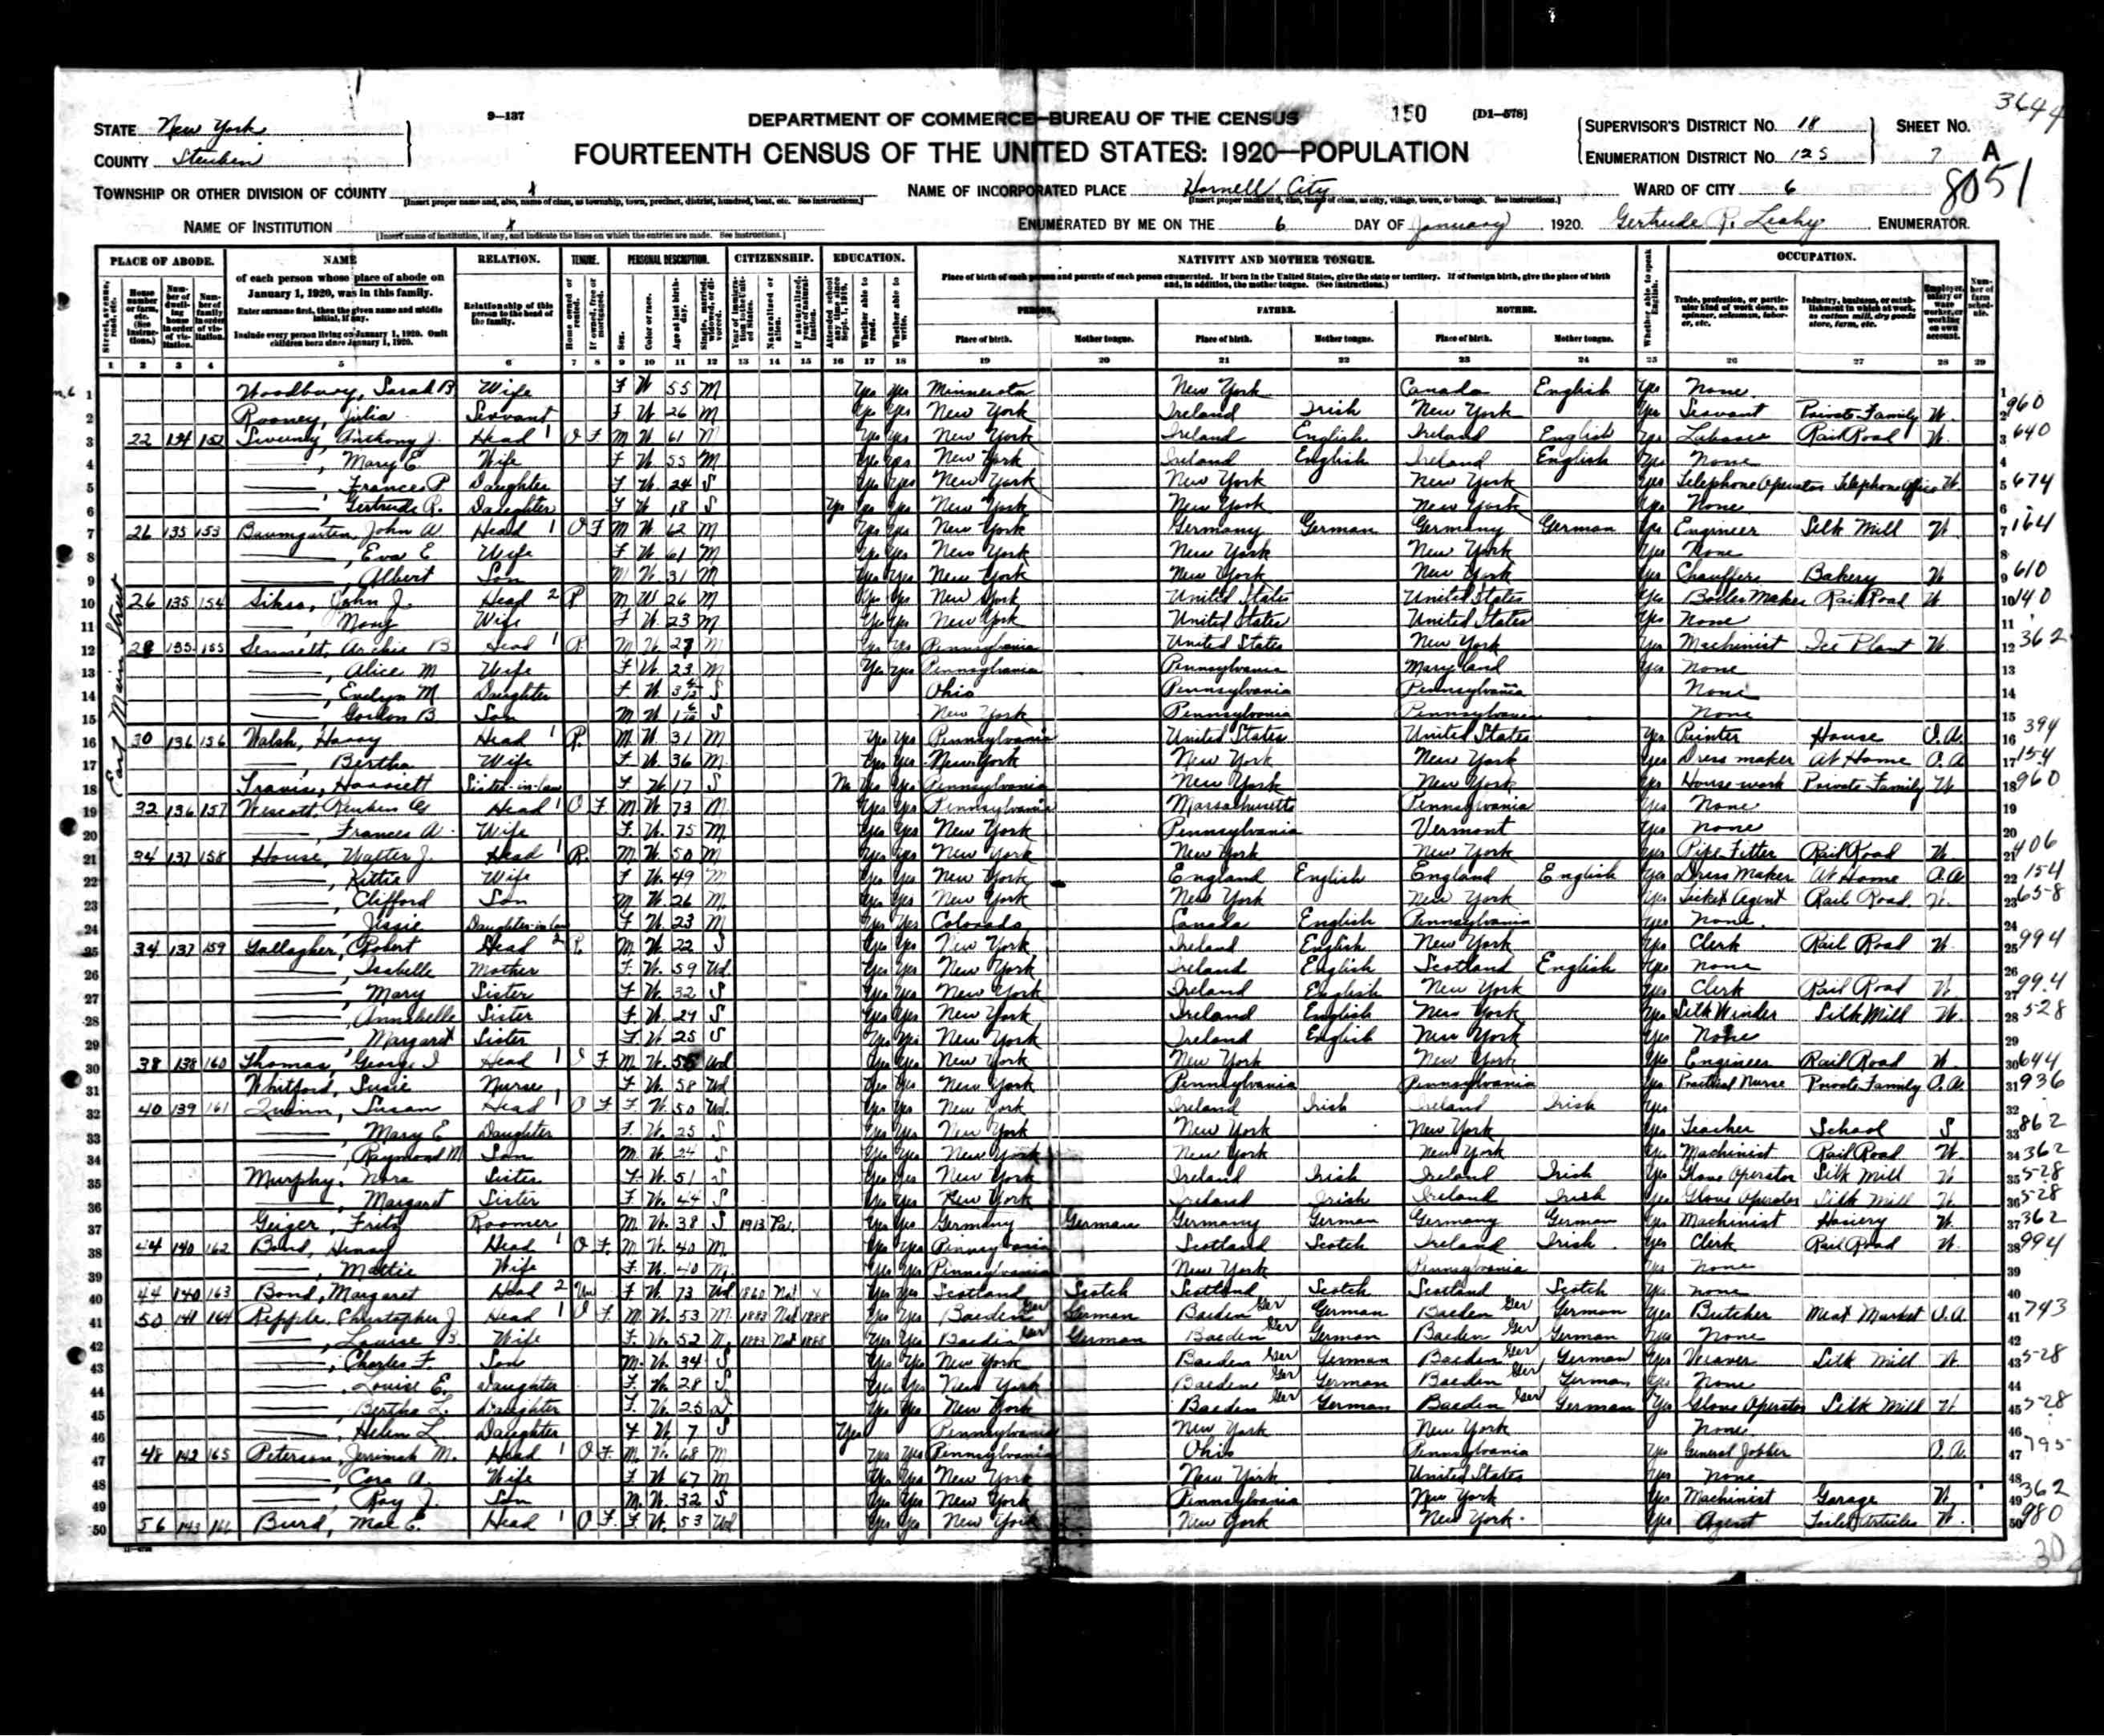 3644
STATE New York
9-137
DEPARTMENT OF COMMERCE—BUREAU OF THE CENSUS
150
[D1-578]
SUPERVISOR'S DISTRICT NO. 18
SHEET NO.
COUNTY Steuben
FOURTEENTH CENSUS OF THE UNITED STATES: 1920—POPULATION
ENUMERATION DISTRICT NO. 125
7 A
8051
TOWNSHIP OR OTHER DIVISION OF COUNTY x
NAME OF INCORPORATED PLACE Hornell City
WARD OF CITY 6
[Insert proper name and, also, name of class, as township, town, precinct, district, hundred, beat, etc. See instructions.]
[Insert proper name and, also, name of class, as city, village, town, or borough. See instructions.]
NAME OF INSTITUTION x
ENUMERATED BY ME ON THE 6 DAY OF January, 1920. Gertrude R. Leahy ENUMERATOR.
[Insert name of institution, if any, and indicate the lines on which the entries are made. See instructions.]
PLACE OF ABODE. NAME RELATION. TENURE. PERSONAL DESCRIPTION. CITIZENSHIP. EDUCATION. NATIVITY AND MOTHER TONGUE. OCCUPATION.
of each person whose place of abode on January 1, 1920, was in this family.
Enter surname first, then the given name and middle initial, if any.
Include every person living on January 1, 1920. Omit children born since January 1, 1920.
Relationship of this person to the head of the family.
Place of birth of each person and parents of each person enumerated. If born in the United States, give the state or territory. If of foreign birth, give the place of birth and, in addition, the mother tongue. (See instructions.)
PERSON. FATHER. MOTHER.
Place of birth. Mother tongue. Place of birth. Mother tongue. Place of birth. Mother tongue.
1 2 3 4 5 6 7 8 9 10 11 12 13 14 15 16 17 18 19 20 21 22 23 24 25 26 27 28 29
East Main Street
1 Woodbury, Sarah B Wife F W 55 M Yes Yes Minnesota New York Canada English Yes None 1
2 Rooney, Julia Servant F W 26 M Yes Yes New York Ireland Irish New York Yes Servant Private Family W 2 960
3 22 134 152 Sweeney, Anthony J. Head 1 O F M W 61 M Yes Yes New York Ireland English Ireland English Yes Laborer Rail Road W. 3 640
4 ——, Mary E. Wife F W 55 M Yes Yes New York Ireland English Ireland English Yes None 4
5 ——, Frances P. Daughter F W 24 S Yes Yes New York New York New York Yes Telephone Operator Telephone Office W. 5 674
6 ——, Gertrude R. Daughter F W 18 S Yes Yes Yes New York New York New York Yes None 6
7 26 135 153 Baumgarten, John W. Head 1 O F M W 62 M Yes Yes New York Germany German Germany German Yes Engineer Silk Mill W 7 164
8 ——, Eva E Wife F W 61 M Yes Yes New York New York New York Yes None 8
9 ——, Albert Son M W 31 M Yes Yes New York New York New York Yes Chauffere Bakery W 9 610
10 26 135 154 John J. Head 2 R M W 26 M Yes Yes New York United States United States Yes Boiler Maker Rail Road W 10 140
11 ——, Wife F W 23 M Yes Yes New York United States United States Yes None 11
12 135 155 Archie B Head 1 R. M W 27 M Yes Yes Pennsylvania United States New York Yes Machinist Ice Plant W. 12 362
13 ——, Alice M Wife F W 23 M Yes Yes Pennsylvania Pennsylvania Maryland Yes None 13
14 ——, Evelyn M Daughter F W S Ohio Pennsylvania Pennsylvania None 14
15 ——, Gordon B. Son M W S New York Pennsylvania Pennsylvania None 15
16 30 136 156 Walsh, Harry Head 1 R. M W 31 M Yes Yes Pennsylvania United States United States Yes Painter House O.A. 16 394
17 ——, Bertha Wife F W 36 M Yes Yes New York New York New York Yes Dress maker At Home O.A 17 154
18 Travis, Harriett Sister-in-law F W 17 S No Yes Yes Pennsylvania New York New York Yes House work Private Family W 18 960
19 32 136 157 Wescott, Reuben G Head 1 O F. M W 73 M Yes Yes Pennsylvania Massachusetts Pennsylvania Yes None 19
20 ——, Frances A. Wife F W. 75 M Yes Yes New York Pennsylvania Vermont Yes None 20
21 34 137 158 House, Walter J. Head 1 R. M W. 50 M Yes Yes New York New York New York Yes Pipe Fitter Rail Road W 21 406
22 ——, Kittie Wife F W. 49 M Yes Yes New York England English England English Yes Dress Maker At Home O.A. 22 154
23 ——, Clifford Son M W. 26 M. Yes Yes New York New York New York Yes Ticket Agent Rail Road W. 23 658
24 ——, Jessie Daughter-in-law F W. 23 M Yes Yes Colorado Canada English Pennsylvania Yes None. 24
25 34 137 159 Gallagher, Robert Head 2 R. M. W. 22 S Yes Yes New York Ireland English New York Yes Clerk Rail Road W. 25 994
26 ——, Isabelle Mother F. W. 59 Wd. Yes Yes New York Ireland English Scotland English Yes None 26
27 ——, Mary Sister F W. 32 S Yes Yes New York Ireland English New York Yes Clerk Rail Road W 27 994
28 ——, Annabelle Sister F. W. 29 S Yes Yes New York Ireland English New York Yes Silk Winder Silk Mill W. 28 528
29 ——, Margaret Sister F W 25 S Yes Yes New York Ireland English New York Yes None 29
30 38 138 160 Thomas, George I Head 1 O F. M. W. Wd Yes Yes New York New York New York Yes Engineer Rail Road W. 30 644
31 Whitford, Susie Nurse F W. 58 Wd Yes Yes New York Pennsylvania Pennsylvania Yes Practical Nurse Private Family O.A. 31 936
32 40 139 161 Quinn, Susan Head 1 O F F. W. 50 Wd. Yes Yes New York Ireland Irish Ireland Irish Yes 32
33 ——, Mary E Daughter F. W. 25 S Yes Yes New York New York New York Yes Teacher School S 33 862
34 ——, Raymond M. Son M W. 24 S Yes Yes New York New York New York Yes Machinist Rail Road W. 34 362
35 Murphy, Nora Sister F. W. 51 S Yes Yes New York Ireland Irish Ireland Irish Yes Glove Operator Silk Mill W 35 528
36 ——, Margaret Sister F W. 44 S Yes Yes New York Ireland Irish Ireland Irish Yes Glove Operator Silk Mill W. 36 528
37 Geiger, Fritz Roomer M. W. 38 S 1913 Pa. Yes Yes Germany German Germany German Germany German Yes Machinist Hosiery W. 37 362
38 44 140 162 Bond, Henry Head 1 O F. M. W. 40 M. Yes Yes Pennsylvania Scotland Scotch Ireland Irish Yes Clerk Rail Road W. 38 994
39 ——, Mattie Wife F. W. 40 M. Yes Yes Pennsylvania New York Pennsylvania Yes None 39
40 44 140 163 Bond, Margaret Head 2 F W 73 Wd 1860 Nat x Yes Yes Scotland Scotch Scotland Scotch Scotland Scotch Yes None 40
41 50 141 164 Ripple, Christopher J. Head 1 O F. M. W. 53 M. 1883 Nat 1888 Yes Yes Baeden Ger German Baeden Ger German Baeden Ger German Yes Butcher Meat Market O.A. 41 743
42 ——, Louise B. Wife F W. 52 M. 1883 Nat 1888 Yes Yes Baeden Ger German Baeden Ger German Baeden Ger German Yes None 42
43 ——, Charles F. Son M. W. 34 S Yes Yes New York Baeden Ger German Baeden Ger German Yes Weaver Silk Mill W. 43 528
44 ——, Louise E. Daughter F W. 28 S Yes Yes New York Baeden Ger German Baeden Ger German Yes None 44
45 ——, Bertha L. Daughter F. W. 25 Yes Yes New York Baeden Ger German Baeden Ger German Yes Glove Operator Silk Mill W 45 528
46 ——, Helen L Daughter F W. 7 S Yes Pennsylvania New York New York None. 46
47 48 142 165 Peterson, Jerimah M. Head 1 O F. M. W. 68 M Yes Yes Pennsylvania Ohio Pennsylvania Yes General Jobber O.A. 47 795
48 ——, Cora A. Wife F W 67 M Yes Yes New York New York United States Yes None 48
49 ——, Ray J. Son M. W. 32 S Yes Yes New York Pennsylvania New York Yes Machinist Garage W 49 362
50 56 143 166 Burd, Mae E. Head 1 O F. F. W. 53 Wd Yes Yes New York New York New York. Yes Agent Toilet Articles W. 50 980
30